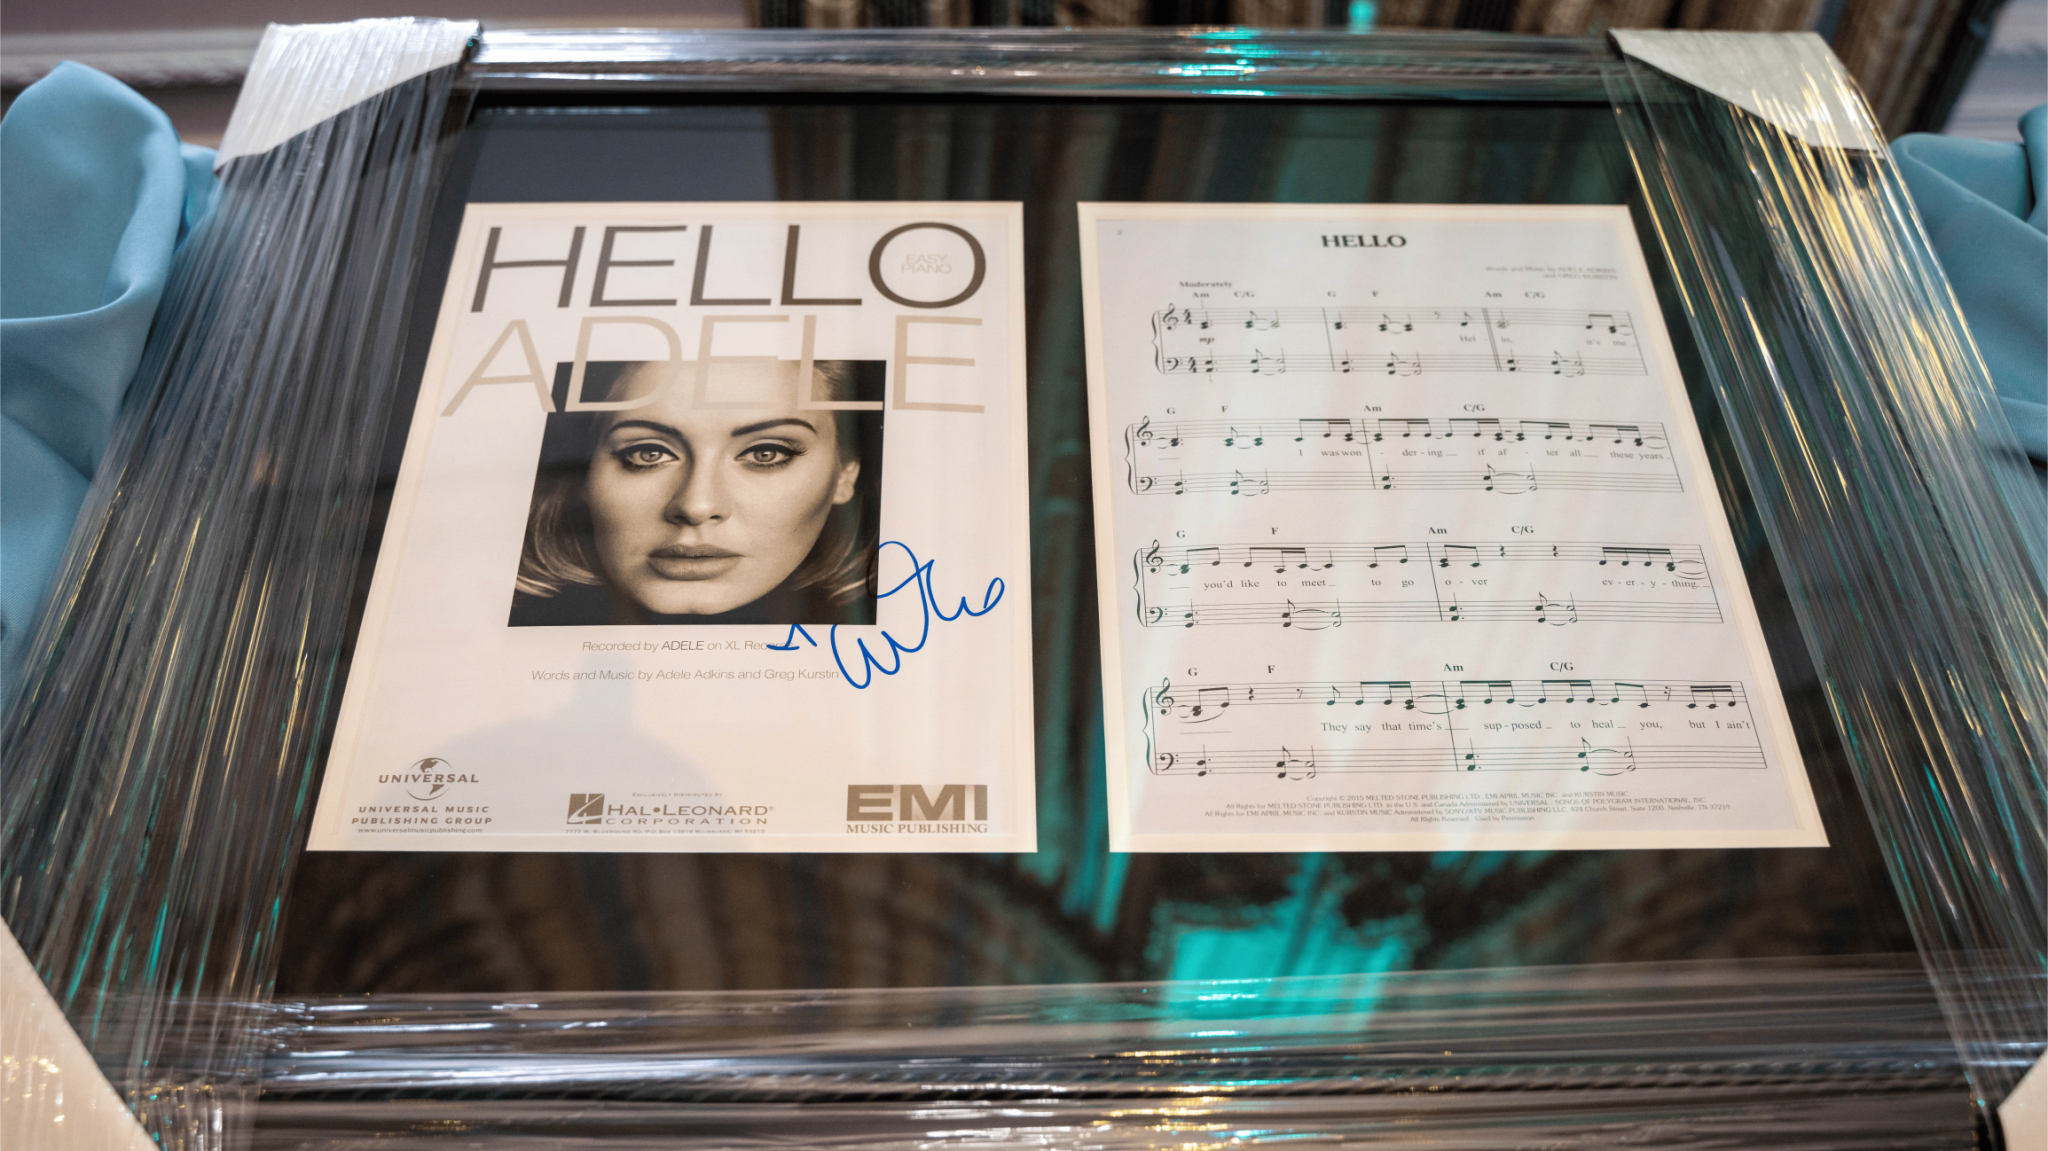 HELLO
EASY
PIANO
ADELE
Recorded by ADELE on XL Rec
Words and Music by Adele Adkins and Greg Kurstin
UNIVERSAL
UNIVERSAL MUSIC
PUBLISHING GROUP
www.universalmusicpublishing.com
EXCLUSIVELY DISTRIBUTED BY
HAL•LEONARD®
CORPORATION
7777 W. BLUEMOUND RD. P.O. BOX 13819 MILWAUKEE, WI 53213
EMI
MUSIC PUBLISHING
2
HELLO
Words and Music by ADELE ADKINS
and GREG KURSTIN
Moderately
Am C/G G F Am C/G
mp
Hel - lo, it's me.
G F Am C/G
I was won - der - ing if af - ter all these years
G F Am C/G
you'd like to meet to go o - ver ev - er - y - thing.
G F Am C/G
They say that time's sup - posed to heal you, but I ain't
Copyright © 2015 MELTED STONE PUBLISHING LTD., EMI APRIL MUSIC INC. and KURSTIN MUSIC
All Rights for MELTED STONE PUBLISHING LTD. in the U.S. and Canada Administered by UNIVERSAL - SONGS OF POLYGRAM INTERNATIONAL, INC.
All Rights for EMI APRIL MUSIC INC. and KURSTIN MUSIC Administered by SONY/ATV MUSIC PUBLISHING LLC, 424 Church Street, Suite 1200, Nashville, TN 37219
All Rights Reserved Used by Permission